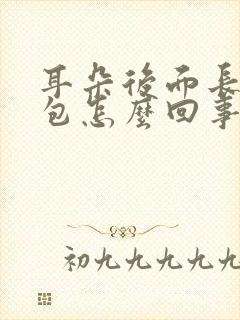 耳朵後面長
包怎麼回事
初九九九九九